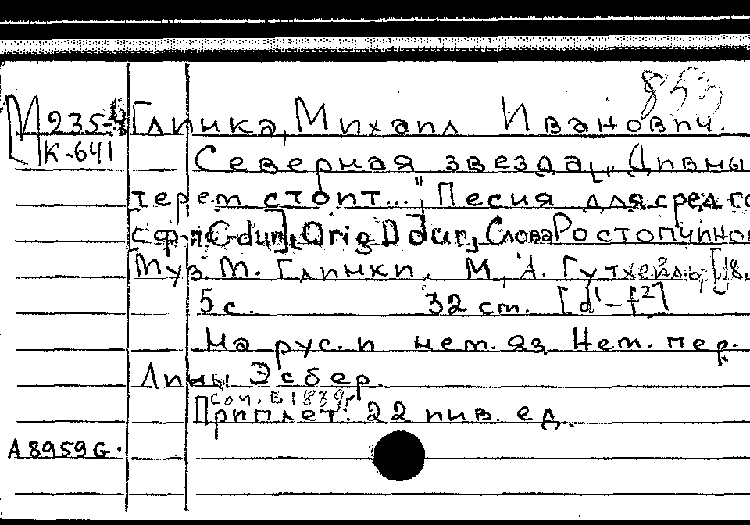 853
М 235-4 Глинка, Михаил Иванович.
К-641
Северная звезда, „Дивны
терем стоит...", Песня для сред го
с ф-п C-dur, Orig D dur, Слова Ростопчиной
Муз. М. Глинки. М., А. Гутхейль, [18.
5 с. 32 cm. [d¹-f²]
На рус. и нем. яз. Нем. пер.
Лины Эсбер.
Соч. в 1839 г.
Приплет. 22 инв. ед.
A 8959 G.